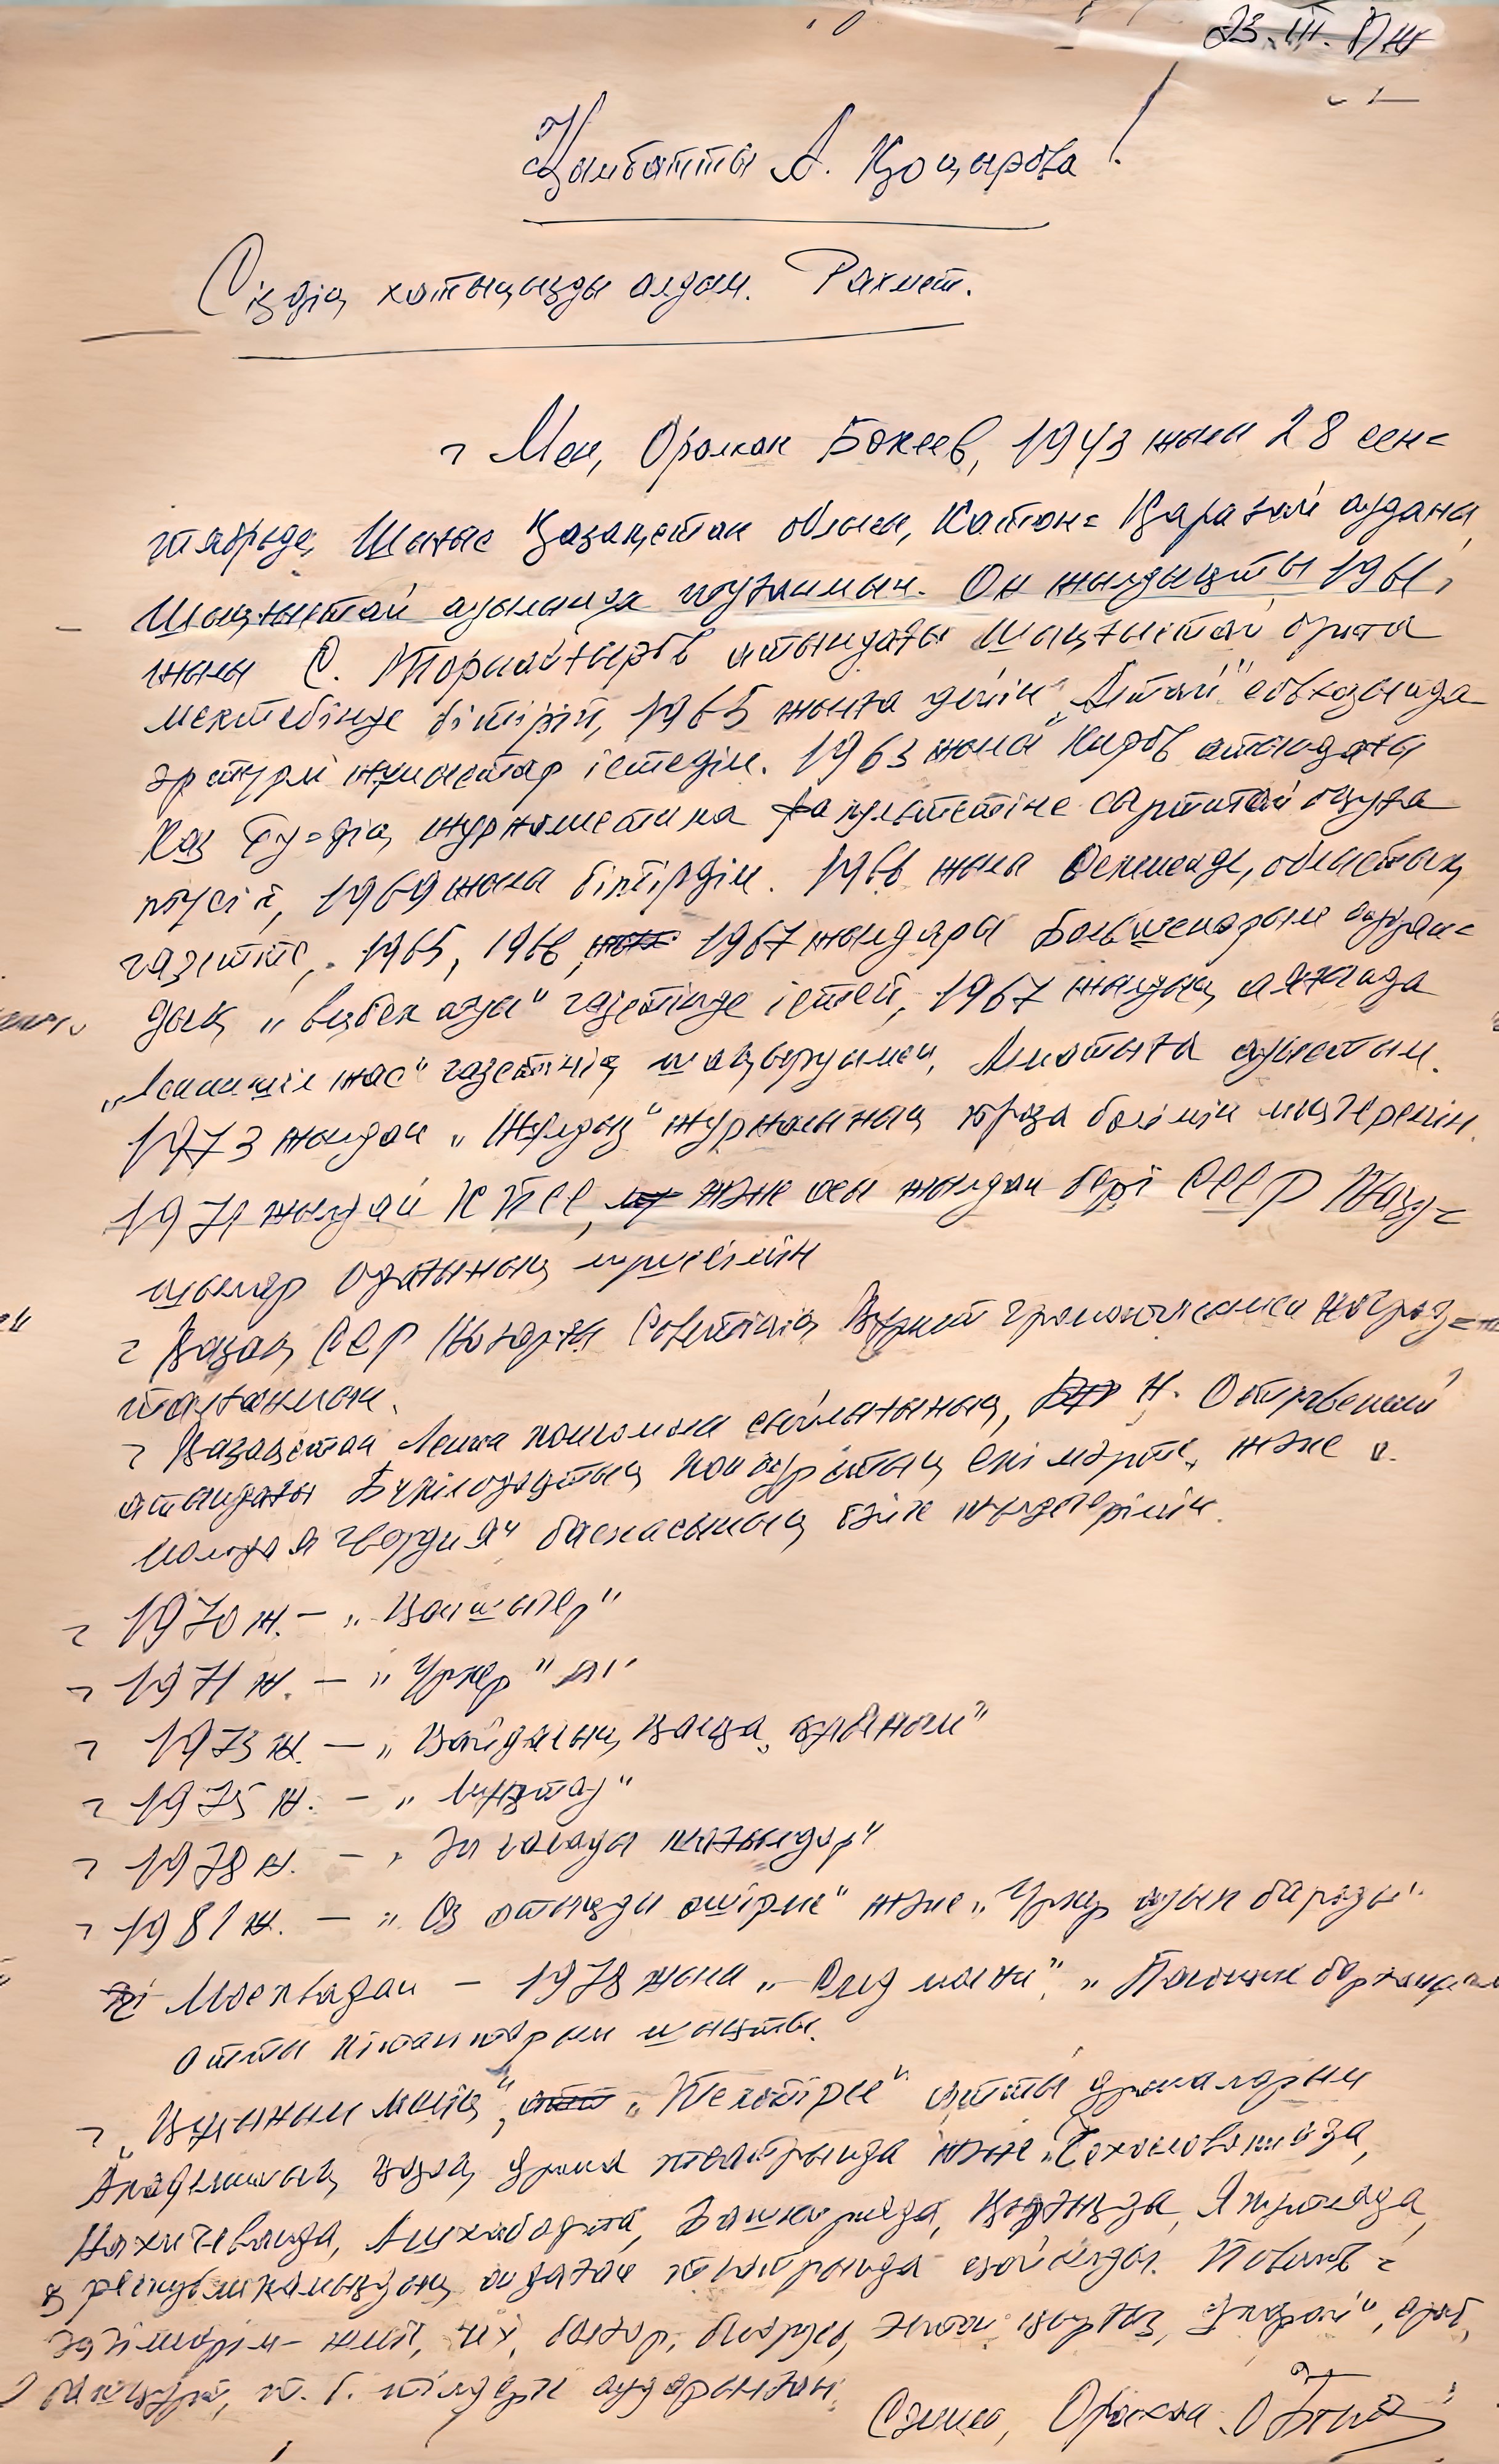 23.III.
Қымбатты А. Қоңырова!
Сіздің хатыңызды алдым. Рахмет.
Мен, Оралхан Бөкеев, 1943 жылы 28 сен=
тябрьде, Шығыс Қазақстан облысы, Катон=Қарағай ауданы,
Шыңғыстай ауылында туғанмын. Он жылдықты 1961,
жылы С. Торайғыров атындағы Шыңғыстай орта
мектебінде бітіріп, 1965 жылға дейін „Алтай" совхозында
әр түрлі жұмыстар істедім. 1963 жылы Киров атындағы
Каз Гу=дің журналистика факультетіне сырттай оқуға
түсіп, 1969 жылы бітірдім. 1966 жылы облыстық
газетте, 1965, 1966, 1967 жылдары Большенарым аудан=
дық „Еңбек туы" газетінде істеп, 1967 жылдың аяғында
„Лениншіл жас" газетінің шақыруымен, Алматыға ауыстым.
1973 жылдан „Жұлдыз" журналының проза бөлімін меңгеремін.
1971 жылдан КПСС, және осы жылдан бері СССР Жазу=
шылар одағының мүшесімін
Қазақ ССР Жоғарғы Советінің Құрмет грамотасымен наград=
талғанмын.
Қазақстан Ленин комсомолы сыйлығының, Н. Островский
атындағы Бүкілодақтық конкурстың екі мәрте, және
Молодая гвардия" баспасының сыйлық жүлдегерімін.
1970 ж. — „Қамшыгер"
1971 ж. — „Үркер"
1973 ж. — „Қайдасың, қасқа құлыным"
1975 ж. — „Мұзтау"
1978 ж. — „Ән салады шағылдар"
1981 ж. — „Өз отыңды өшірме" және „Үркер ауып барады"
Москвадан — 1978 жылы „След молнии", „
атты кітаптарым шықты.
„Құлыным менің", „Текетірес" атты драмаларым
Академиялық қазақ драма театрында және Чехословакияда,
Нахичеванда, Ашхабадта, Башкирияда, Якутияда,
республикамыздың театрында қойылды. Повесть=
чех, болгар,
т. б. тілдерге аударылған.
Сәлем, Оралхан